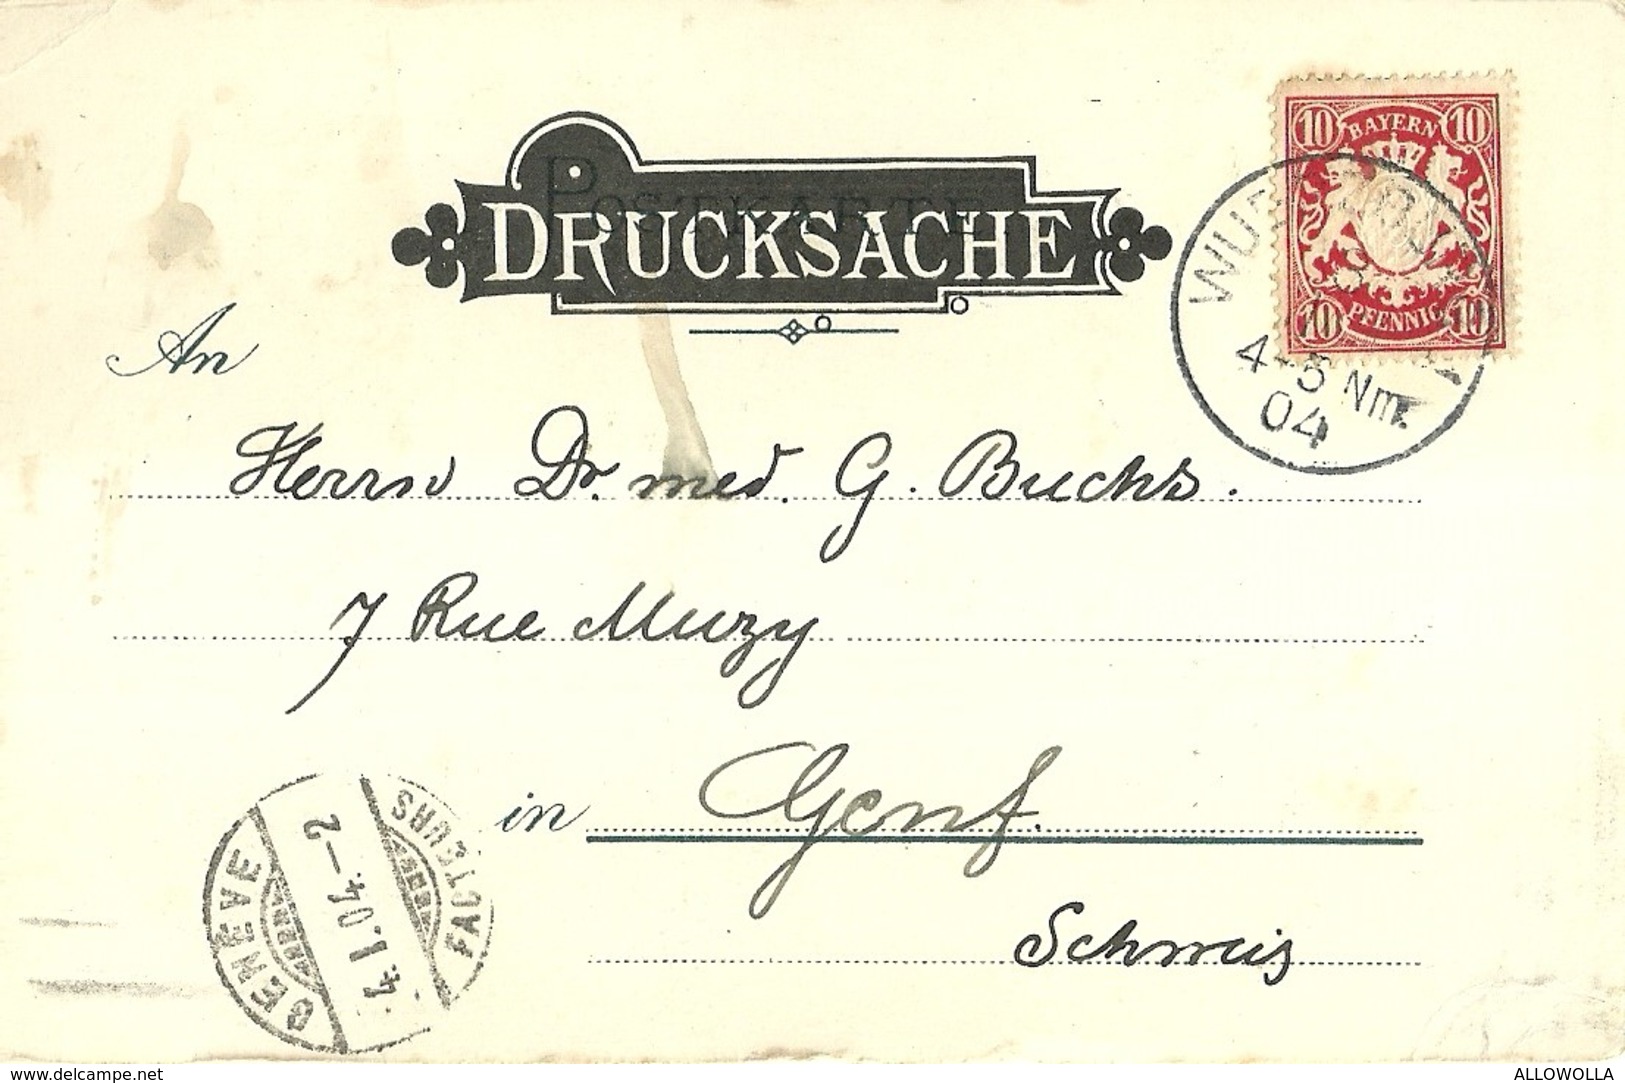 POSTKARTE
DRUCKSACHE
10 BAYERN 10
10 PFENNIG 10
4-5 Nm.
04
An
Herrn Dr. med. G. Buchs.
7 Rue Muzy
in Genf.
Schweiz
GENEVE
4.I.04.-2
FACTEURS
www.delcampe.net
ALLOWOLLA